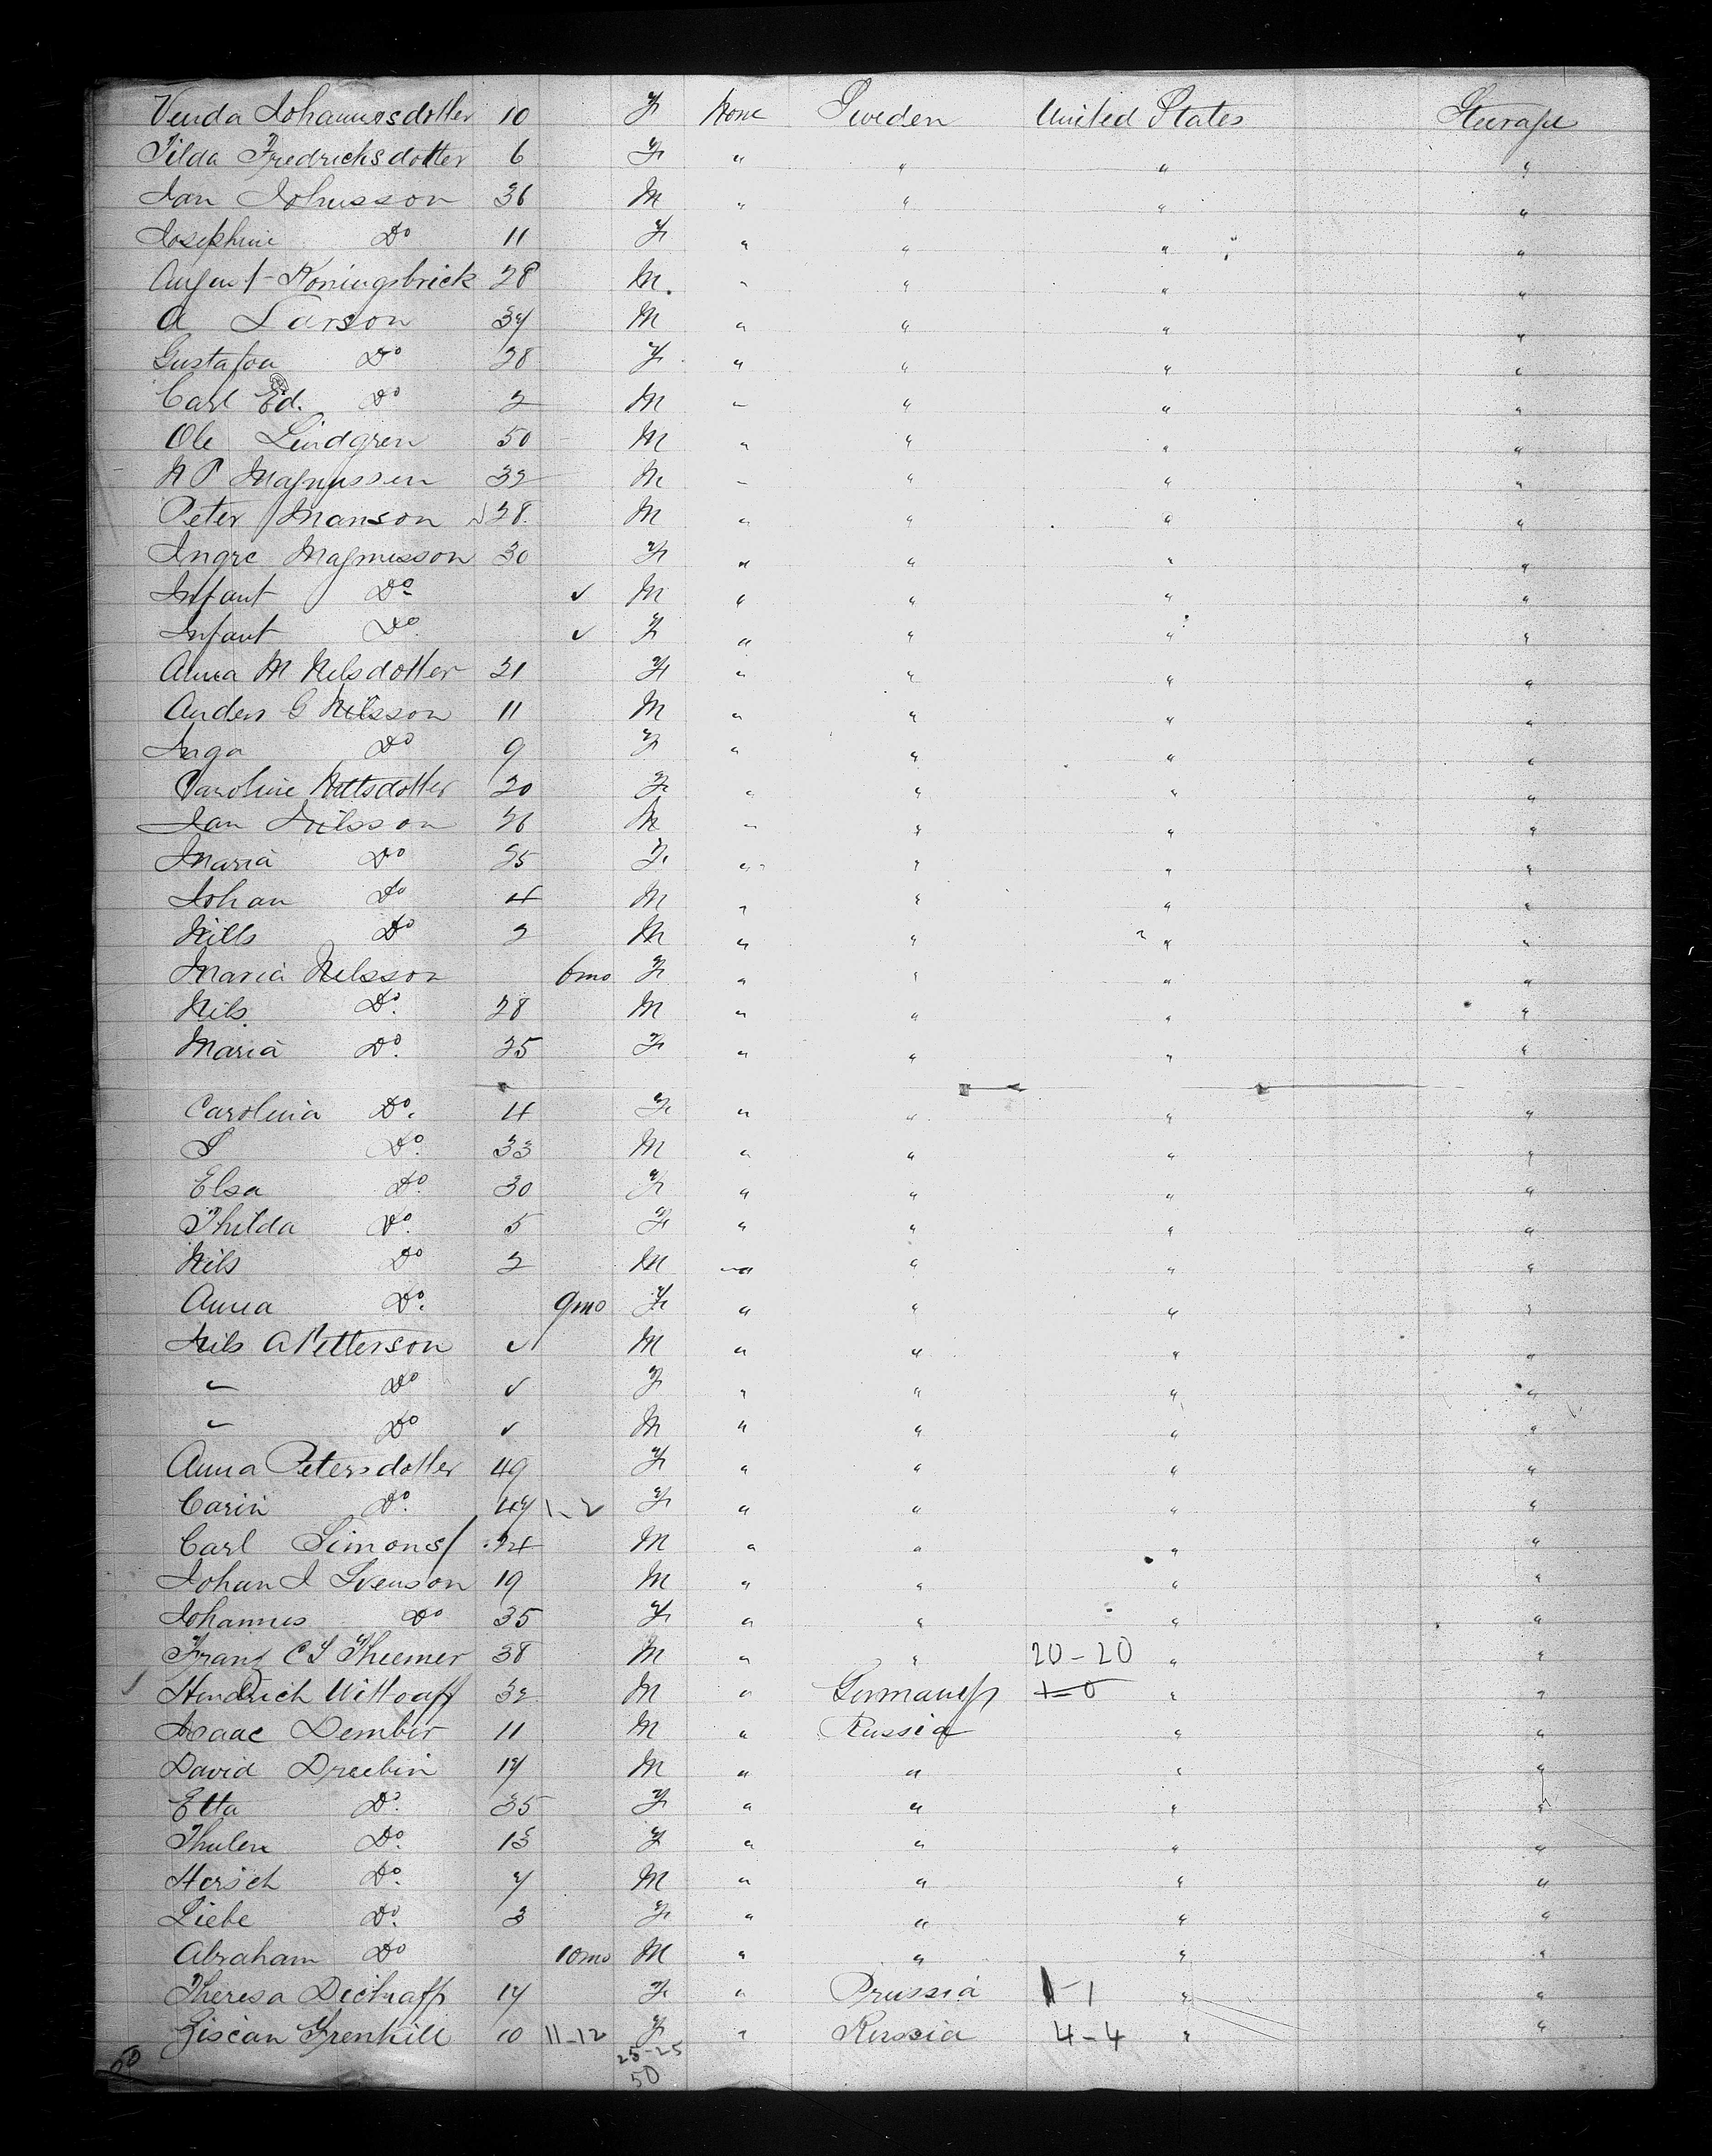 Venda Johannesdotter 10 F None Sweden United States Steerage
Tilda Fredrichsdotter 6 F " " " "
Jan Johnsson 36 M " " " "
Josephine Do 11 F " " " "
August Koningsbrick 28 M. " " " "
A Larson 34 M " " " "
Gustafva Do 28 F " " " "
Carl Ed. Do 2 M " " " "
Ole Lindgren 50 M " " " "
N P Magnussen 32 M " " " "
Peter Manson 28. M " " " "
Ingre Magnusson 30 F " " " "
Infant Do ✓ M " " " "
Infant Do ✓ F " " " "
Anna M Nelsdotter 21 F " " " "
Anders G Nilsson 11 M " " " "
Inga Do 9 F " " " "
Caroline Nillsdotter 20 F " " " "
Jan Nilsson 26 M " " " "
Maria Do 25 F " " " "
Johan Do 4 M " " " "
Nills Do 2 M " " " "
Maria Nilsson 6mo F " " " "
Nils Do. 28 M " " " "
Maria Do. 25 F " " " "
Carolina Do. 4 F " " " "
S Do. 33 M " " " "
Elsa Do. 30 F " " " "
Thilda Do. 5 F " " " "
Nils Do 2 M " " " "
Anna Do. 9mo F " " " "
Nils A Petterson ✓ M " " " "
" Do ✓ F " " " "
" Do ✓ M " " " "
Anna Petersdotter 49 F " " " "
Carin Do. 47 1-2 F " " " "
Carl Simons 24 M " " " "
Johan J Svenson 19 M " " " "
Johannes Do 35 F " " " "
Franz C S Theemer 38 M " " 20-20 " "
Hendrich Wittoaff 32 M " Germany 1-0 " "
Isaac Dember 11 M " Russia " "
David Dreebin 14 M " " " "
Etta Do. 35 F " " " "
Thulen Do. 13 F " " " "
Hersch Do. 7 M " " " "
Liebe Do. 3 F " " " "
Abraham Do 10mo M " " " "
Theresa 14 F " Prussia 1-1 " "
Ziscan Frenkill 10 11-12 F " Russia 4-4 " "
50 25-25
50